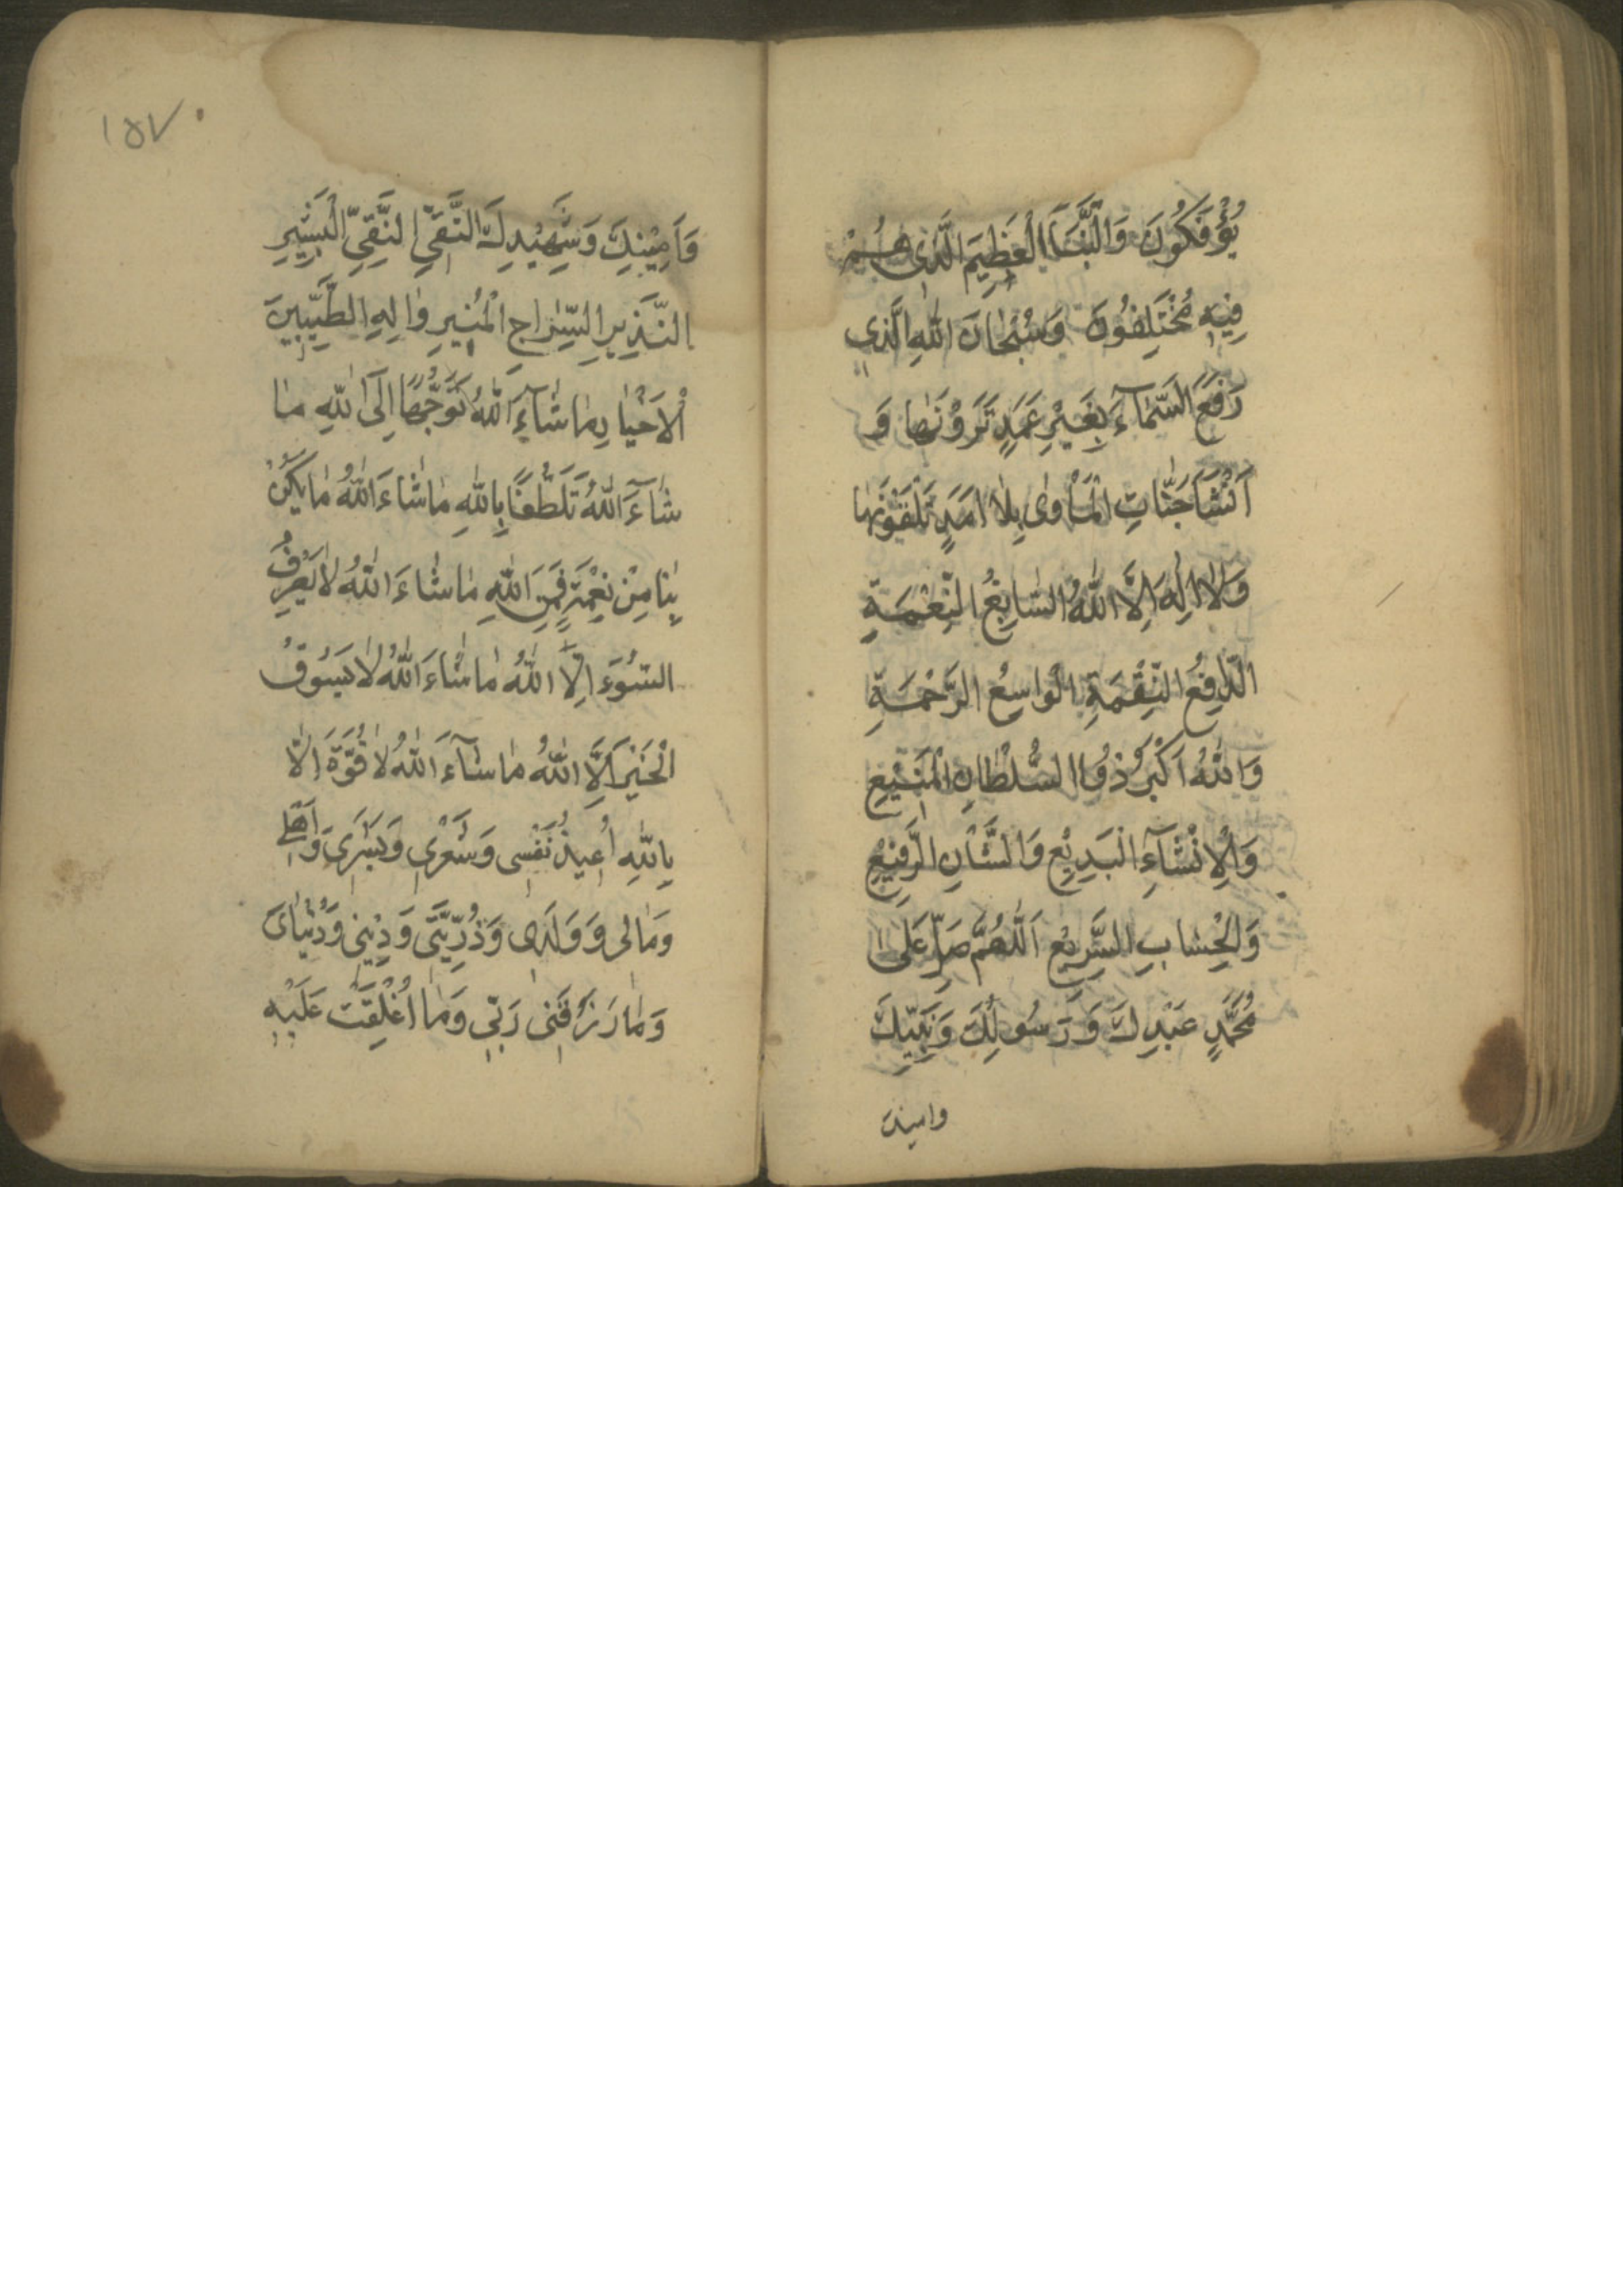 يُؤْفَكُونَ وَالنَّبَأِ الْعَظِيمِ الَّذِي هُمْ
فِيهِ مُخْتَلِفُونَ وَسُبْحَانَ اللّٰهِ الَّذِي
رَفَعَ السَّمَآءَ بِغَيْرِ عَمَدٍ تَرَوْنَهٰا وَ
اَنْشَأَ جَنّٰاتِ الْمَأْوٰى بِلاٰ اَمَدٍ تَلْقَوْنَهٰا
وَلاٰ اِلٰهَ اِلَّا اللّٰهُ السّٰابِغُ النِّعْمَةِ
الدّٰافِعُ النِّقْمَةِ الْوٰاسِعُ الرَّحْمَةِ
وَاللّٰهُ اَكْبَرُ ذُو السُّلْطٰانِ الْمَنِيْعِ
وَالْاِنْشَآءِ الْبَدِيْعِ وَالشَّأْنِ الرَّفِيْعِ
وَالْحِسٰابِ السَّرِيْعِ اَللّٰهُمَّ صَلِّ عَلٰى
مُحَمَّدٍ عَبْدِكَ وَرَسُولِكَ وَنَبِيِّكَ
وامينك
١٥٧
وَاَمِيْنِكَ وَشَهِيْدِكَ التَّقِيِّ النَّقِيِّ الْبَشِيرِ
النَّذِيرِ السِّرٰاجِ الْمُنِيرِ وَاٰلِهِ الطَّيِّبِينَ
الْاَخْيٰارِ مٰا شٰآءَ اللّٰهُ تَوَجُّهًا اِلَى اللّٰهِ مٰا
شٰآءَ اللّٰهُ تَلَطُّفًا بِاللّٰهِ مٰا شٰاءَ اللّٰهُ مٰا يَكُنْ
بِنٰا مِنْ نِعْمَةٍ فَمِنَ اللّٰهِ مٰا شٰاءَ اللّٰهُ لاٰ يَصْرِفُ
السُّوءَ اِلَّا اللّٰهُ مٰا شٰاءَ اللّٰهُ لاٰ يَسُوقُ
الْخَيْرَ اِلَّا اللّٰهُ مٰا شٰآءَ اللّٰهُ لاٰ قُوَّةَ اِلّٰا
بِاللّٰهِ اُعِيذُ نَفْسِي وَشَعْرِي وَبَشَرِي وَاَهْلِي
وَمٰالِي وَوَلَدِي وَذُرِّيَّتِي وَدِيْنِي وَدُنْيٰايَ
وَمٰا رَزَقَنِي رَبِّي وَمٰا اُغْلِقَتْ عَلَيْهِ